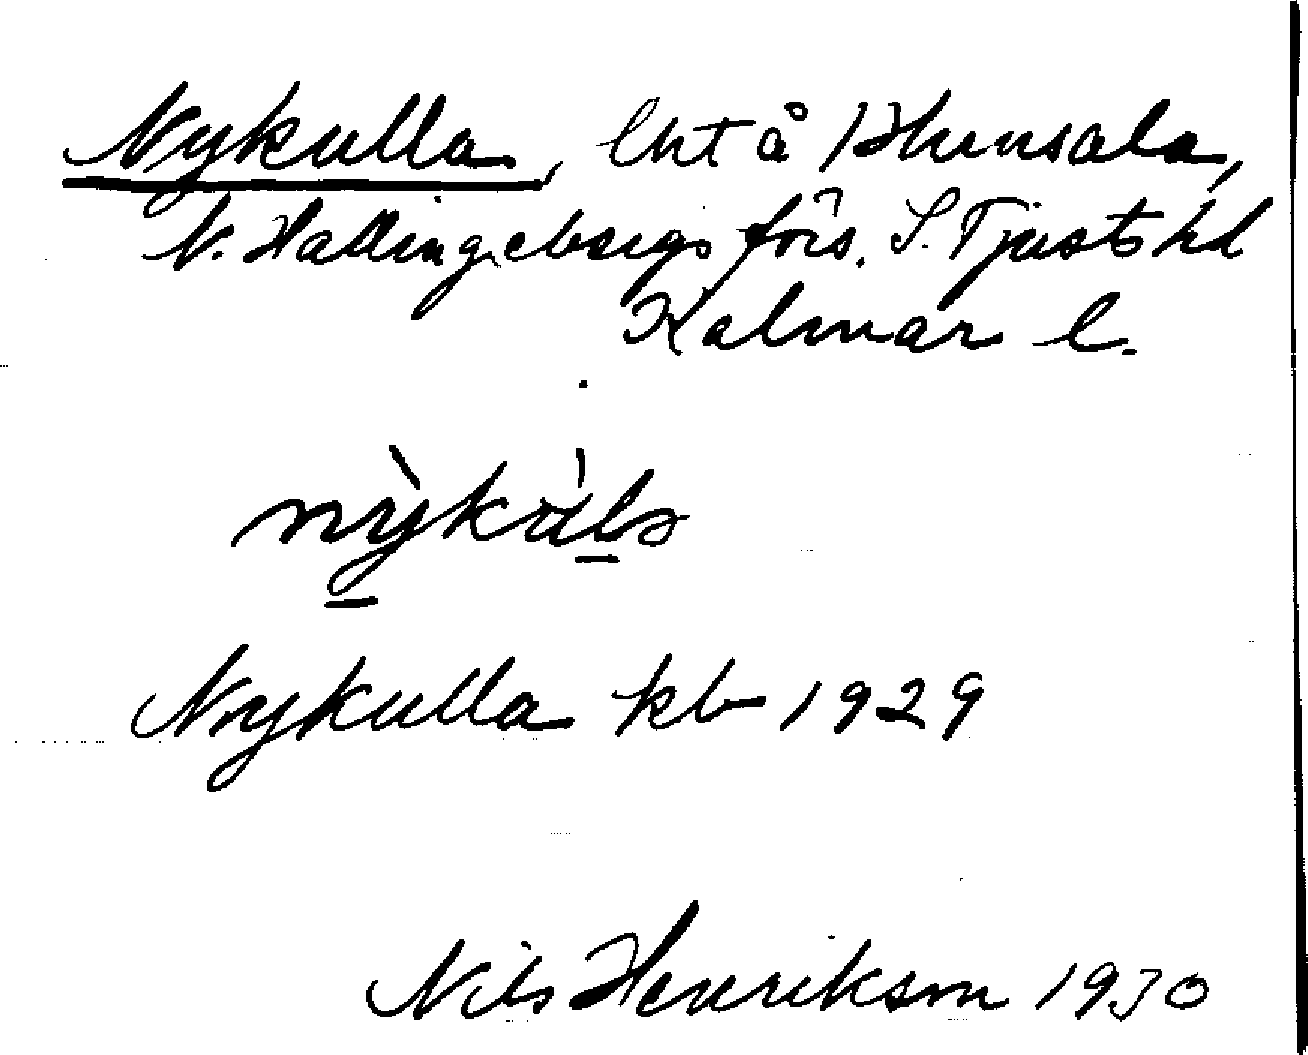 Nykulla, lht å 1 Hunsala,
N. Hallingebergs förs. S. Tjusts hd
Kalmar l.
Nykulla kb 1929
Nils Henrikson 1930